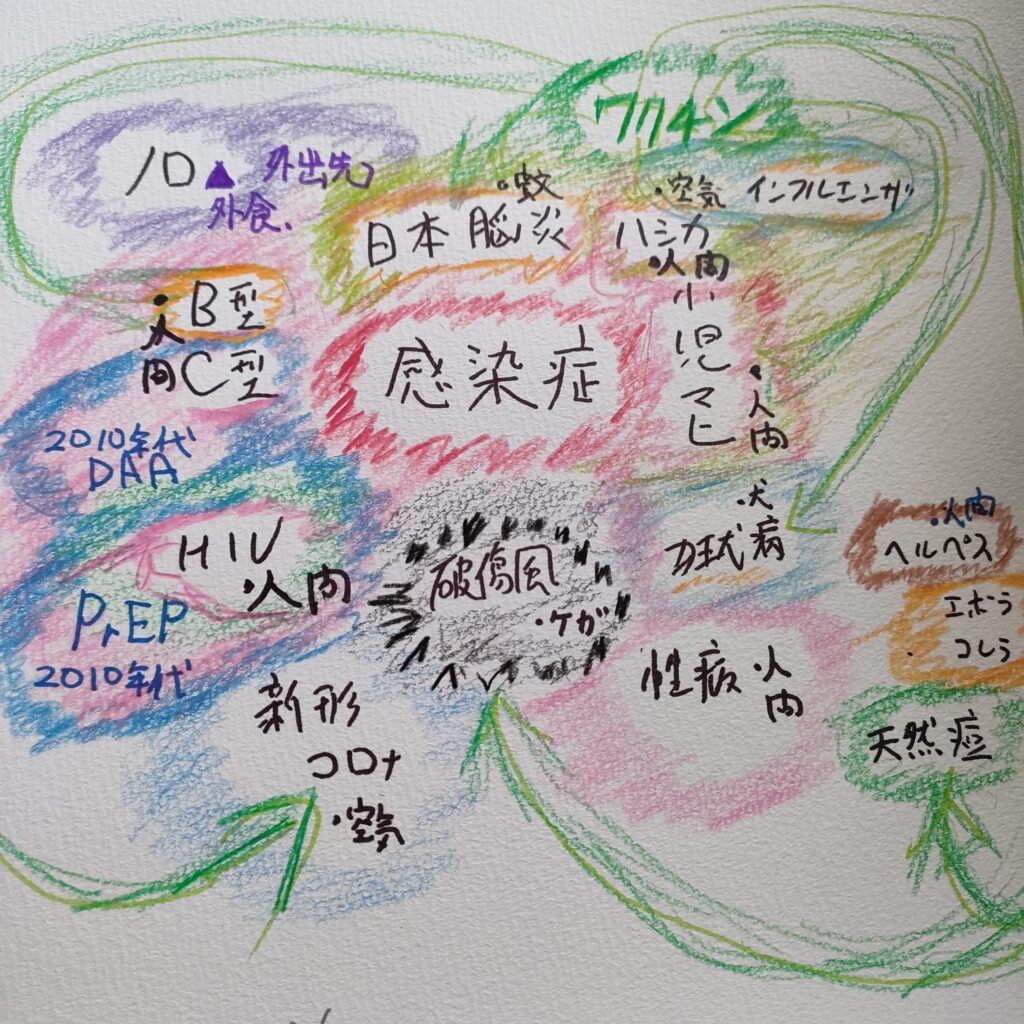 ワクチン
ノロ▲外出先
外食、
・蚊
日本脳炎
・空気 インフルエンザ
ハシカ
・人間
小児マヒ
・人間
・B型
人間C型
感染症
2010年代
DAA
HIV
・人間
PrEP
2010年代
破傷風
・ケガ
・犬
狂犬病
・人間
ヘルペス
エボラ
・コレラ
性病 人間
天然痘
新形
コロナ
・空気